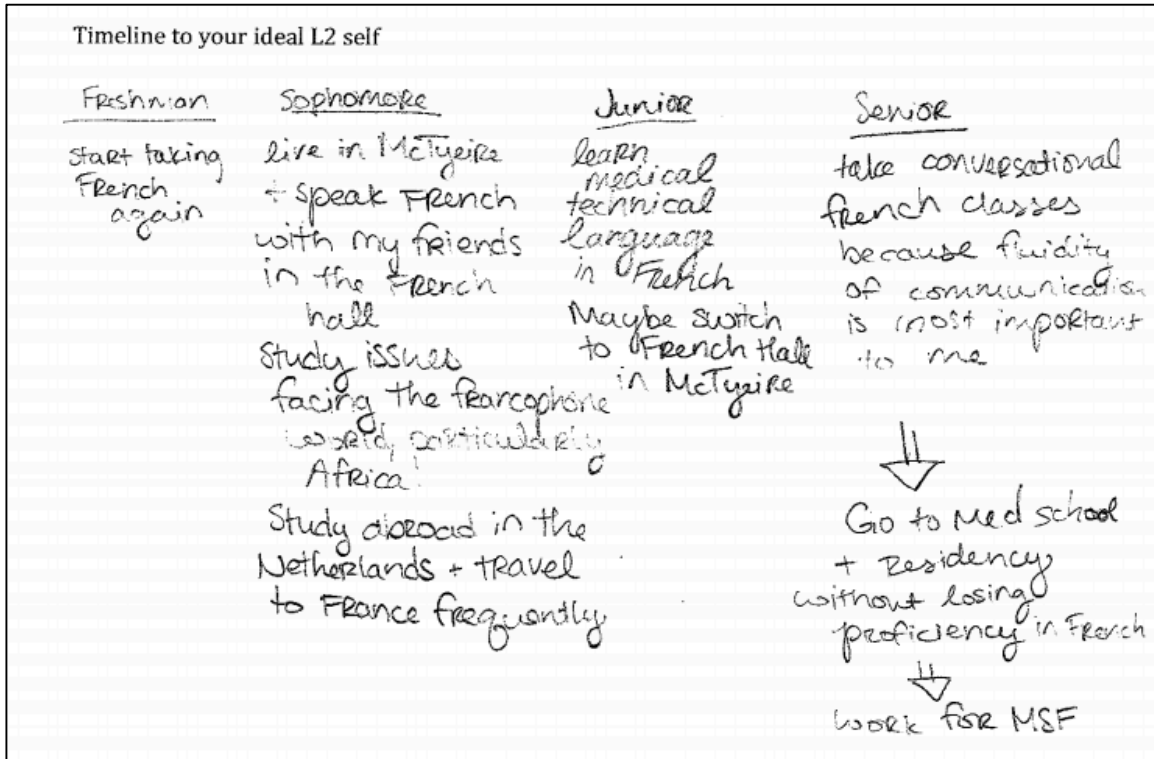 Timeline to your ideal L2 self
Freshman
start taking
French
again
Sophomore
live in McTyeire
+ speak French
with my friends
in the French
hall
Study issues
facing the francophone
world, particularly
Africa!
Study abroad in the
Netherlands + travel
to France frequently
Junior
learn
medical
technical
language
in French
Maybe switch
to French Hall
in McTyeire
Senior
take conversational
french classes
because fluidity
of communication
is most important
to me
Go to Med school
+ Residency
without losing
proficiency in French
work for MSF